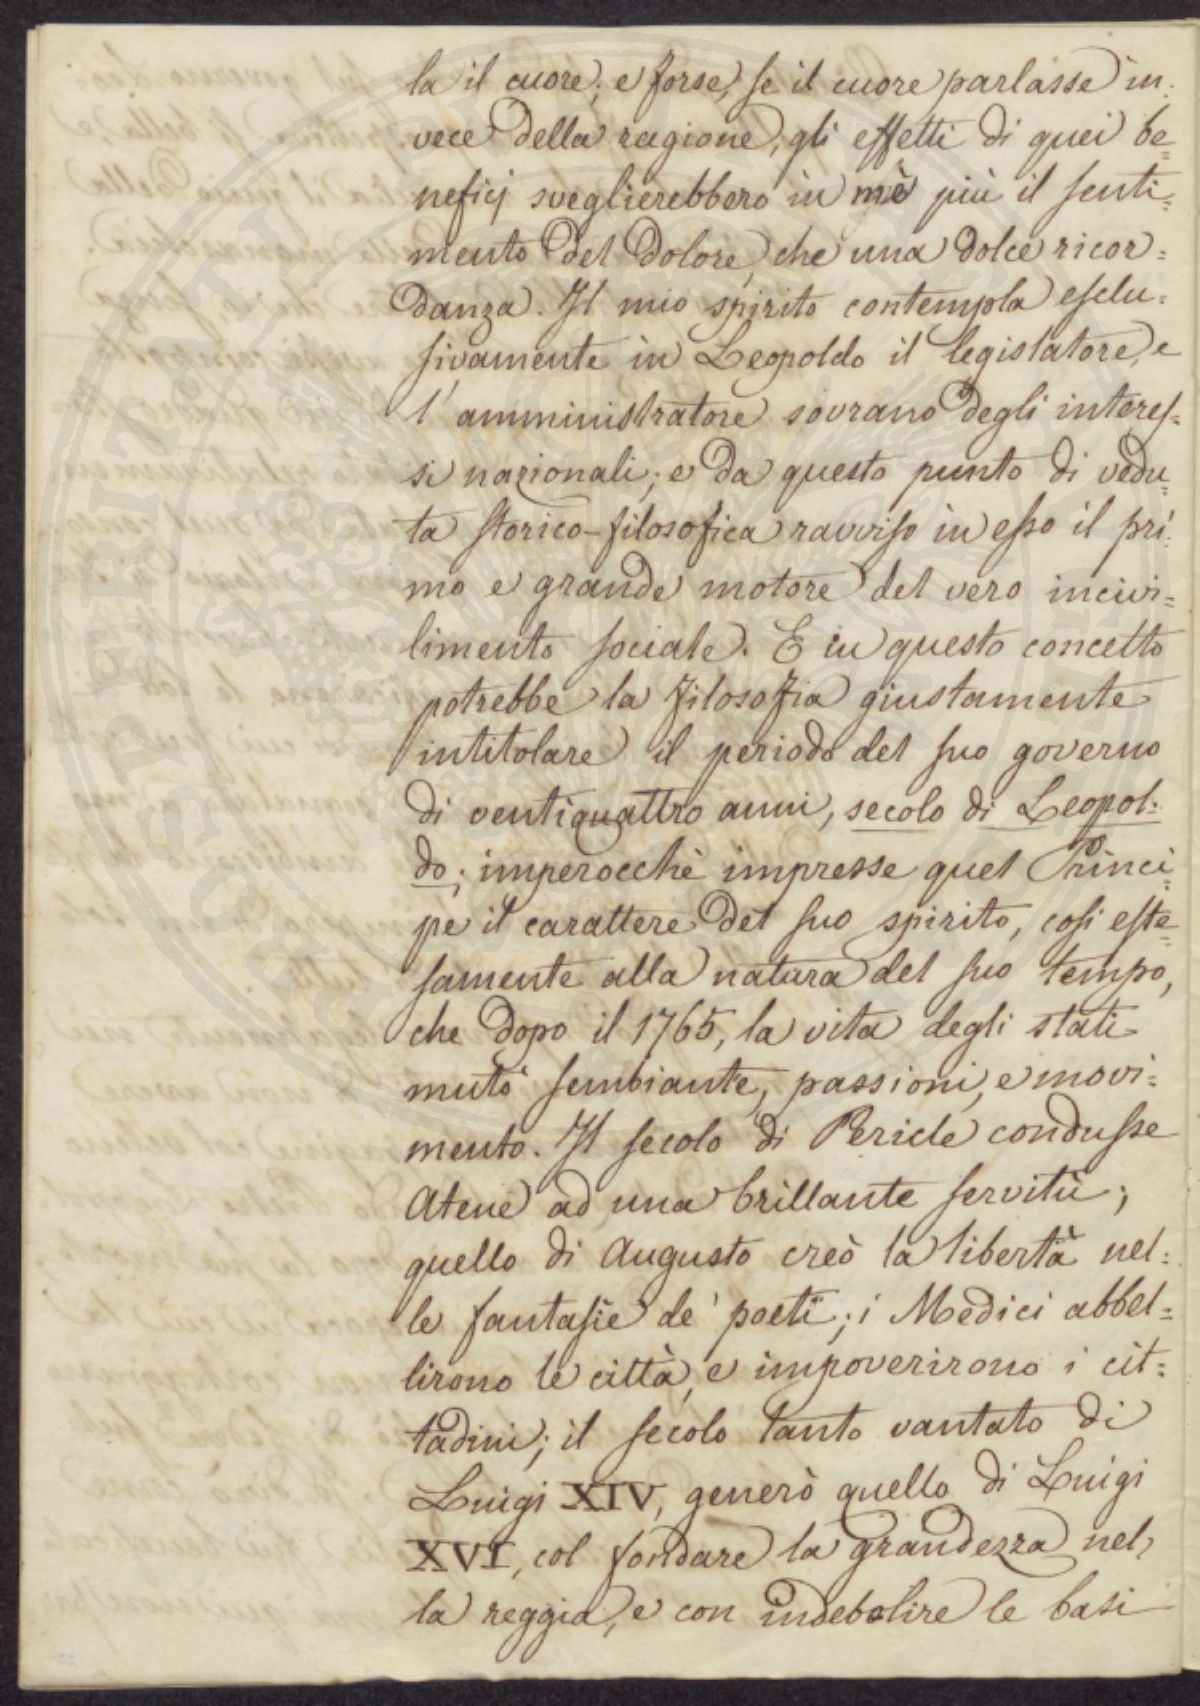 la il cuore; e forse, se il cuore parlasse in:
vece della ragione, gli effetti di quei be=
neficj sveglierebbero in mè più il senti=
mento del dolore, che una dolce ricor=
danza. Il mio spirito contempla esclu=
sivamente in Leopoldo il legislatore, e
l'amministratore sovrano degli interes=
si nazionali; e da questo punto di vedu=
ta storico-filosofica ravviso in esso il pri=
mo e grande motore del vero incivi=
limento sociale. E in questo concetto
potrebbe la filosofia giustamente
intitolare il periodo del suo governo
di ventiquattro anni, secolo di Leopol=
do; imperocchè impresse quel Princi=
pe il carattere del suo spirito, così este=
samente alla natura del suo tempo,
che dopo il 1765, la vita degli stati
mutò sembiante, passioni, e movi=
mento. Il secolo di Pericle condusse
Atene ad una brillante servitù;
quello di Augusto creò la libertà nel=
le fantasie de' poeti; i Medici abbel=
lirono le città, e impoverirono i cit=
tadini; il secolo tanto vantato di
Luigi XIV, generò quello di Luigi
XVI, col fondare la grandezza nel,
la reggia, e con indebolire le basi